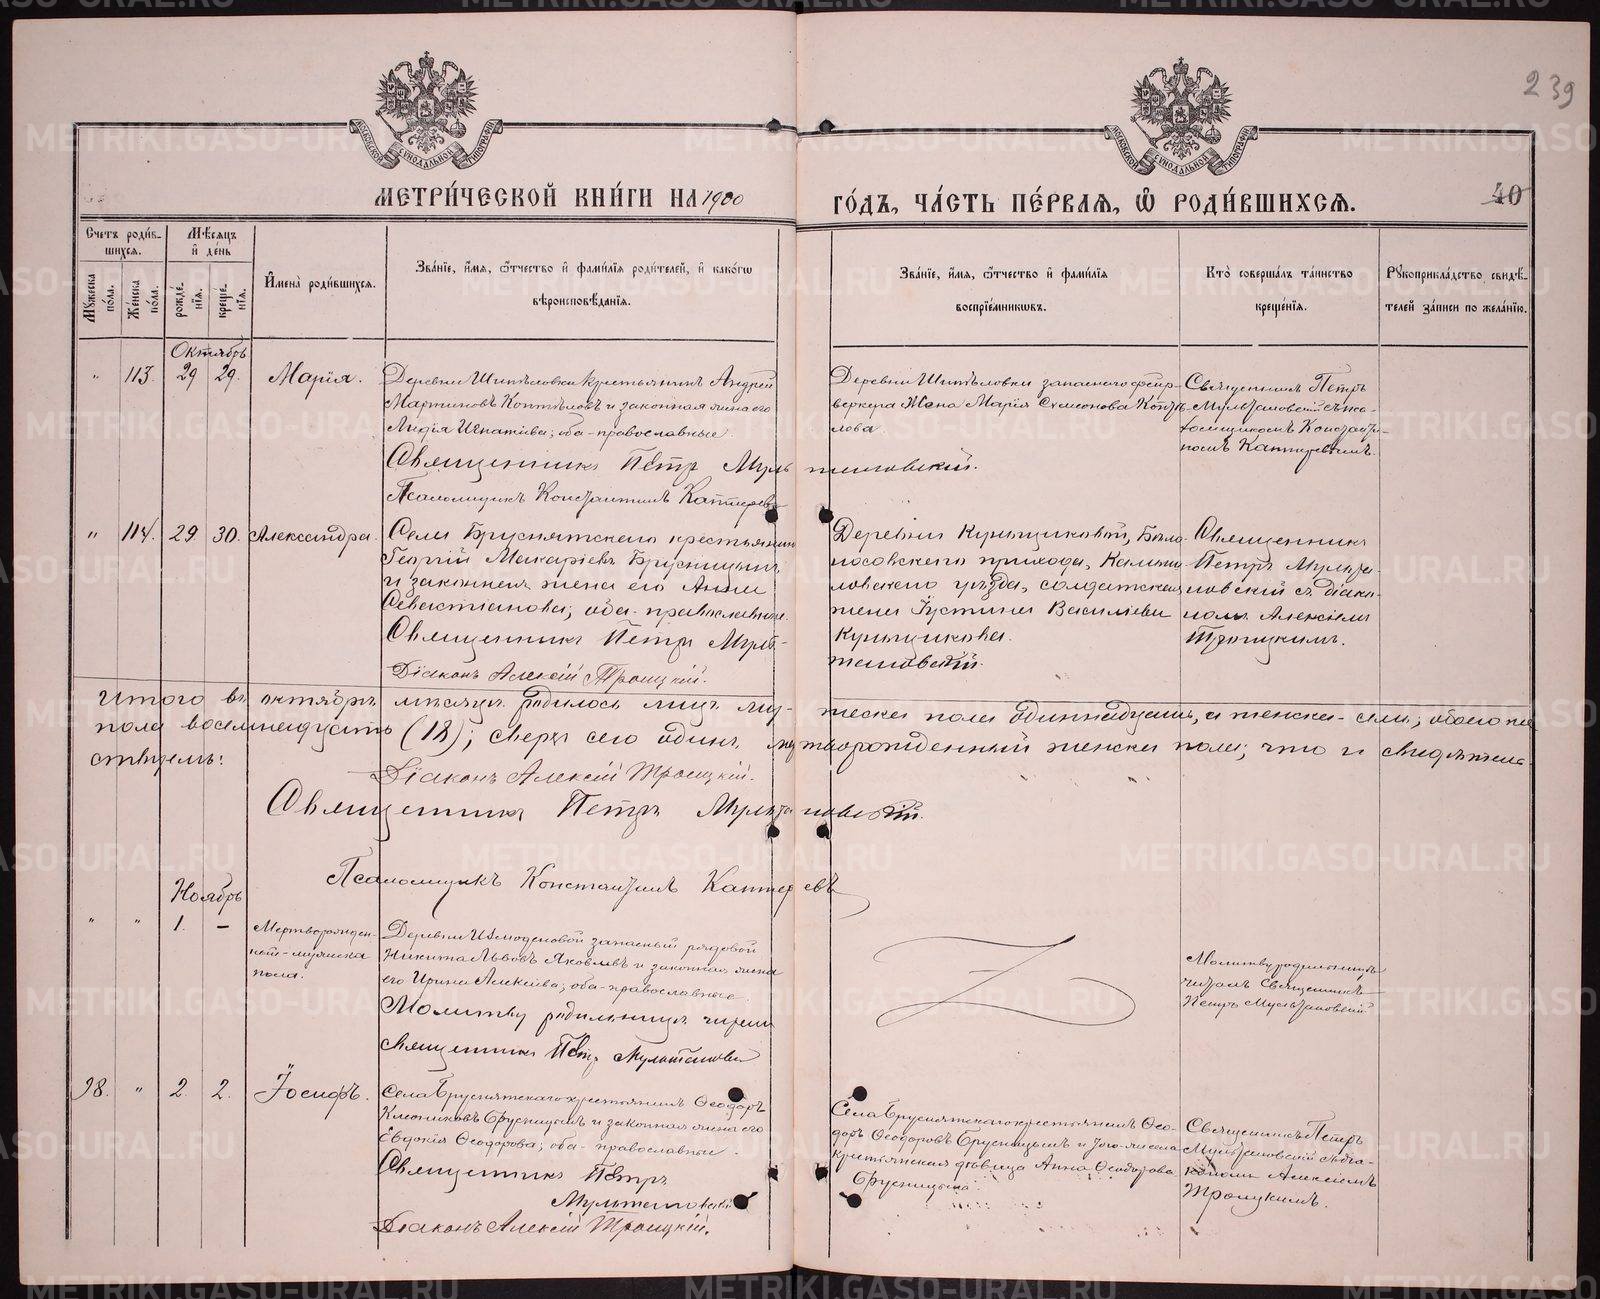 239
МОСКОВСКОЙ СѴНОДАЛЬНОЙ ТИПОГРАФІИ
МОСКОВСКОЙ СѴНОДАЛЬНОЙ ТИПОГРАФІИ
МЕТРИ́ЧЕСКОЙ КНИ́ГИ НА 1900
ГО́ДЪ, ЧА́СТЬ ПЕ́РВАЯ, Ѽ РОДИ́ВШИХСЯ.
40
Счетъ роди́в-
шихся.
Мѣ́сяцъ
и де́нь
Му́жеска
по́ла.
Же́нска
по́ла.
рожде́-
нїя.
креще́-
нїя.
Имена̀ роди́вшихся.
Зва́нїе, и́мя, ѻ҆́тчество и фами́лїя роди́телей, и како́гѡ
вѣроисповѣ́данїя.
Зва́нїе, и́мя, ѻ҆́тчество и фами́лїя
воспрїе́мникѡвъ.
Кто̀ соверша́лъ та́инство
креще́нїя.
Рукоприкла́дство свидѣ́-
телей за́писи по жела́нїю.
Октябрь
" 113. 29 29. Марія.
Деревни Шипѣловки крестьянинъ Андрей
Мартиновъ Коптѣловъ и законная жена его
Лидія Игнатіева; оба-православные.
Священникъ Петръ Мультановскій.
Псаломщикъ Константинъ Каптеревъ
Деревни Шипѣловки запаснаго фейр-
веркера жена Марія Симеонова Коптѣ-
лова.
Священникъ Петръ
Мультановскій съ пса-
ломщикомъ Константи-
номъ Каптеревымъ.
" 114. 29. 30. Александра.
Села Бруснятскаго крестьянинъ
Георгій Макаріевъ Брусницынъ
и законная жена его Анна
Севастіанова; оба-православные.
Священникъ Петръ Мульт-
ановскій.
Діаконъ Алексій Троицкій.
Деревни
прихода, Камыш-
ловскаго уѣзда, солдатская
жена Іустина Василіева
Священникъ
Петръ Мульта-
новскій съ діако-
номъ Алексіемъ
Троицкимъ.
Итого въ октябрѣ мѣсяцѣ родилось лицъ му-жеска пола одиннадцать, а женска-семь; обоего же
пола восемнадцать (18); сверхъ сего одинъ мертворожденный женска пола; что и свидѣтель-
ствуемъ:
Діаконъ Алексій Троицкій.
Священникъ Петръ Мультановскій.
Псаломщикъ Константинъ Каптеревъ
Ноябрь
" " 1. – Мертворожден-
ный-мужеска
пола.
Деревни запасный рядовой
Никита Львовъ Яковлевъ и законная жена
его Ирина Алексіева; оба-православные.
Молитву родильницѣ читалъ
священникъ Петръ Мультановскій
Молитву родильницѣ
читалъ Священникъ
Петръ Мультановскій
98. " 2. 2. Іосифъ.
Села Бруснятскаго крестьянинъ Ѳеодоръ
Брусницынъ и законная жена его
Евдокія Ѳеодорова; оба-православные.
Священникъ Петръ
Мультановскій
Діаконъ Алексій Троицкій.
Села Бруснятскаго крестьянинъ Ѳео-
доръ Ѳеодоровъ Брусницынъ и того-же села
крестьянская дѣвица Анна Ѳеодорова
Брусницына.
Священникъ Петръ
Мультановскій съ діа-
кономъ Алексіемъ
Троицкимъ.
METRIKI.GASO-URAL.RU